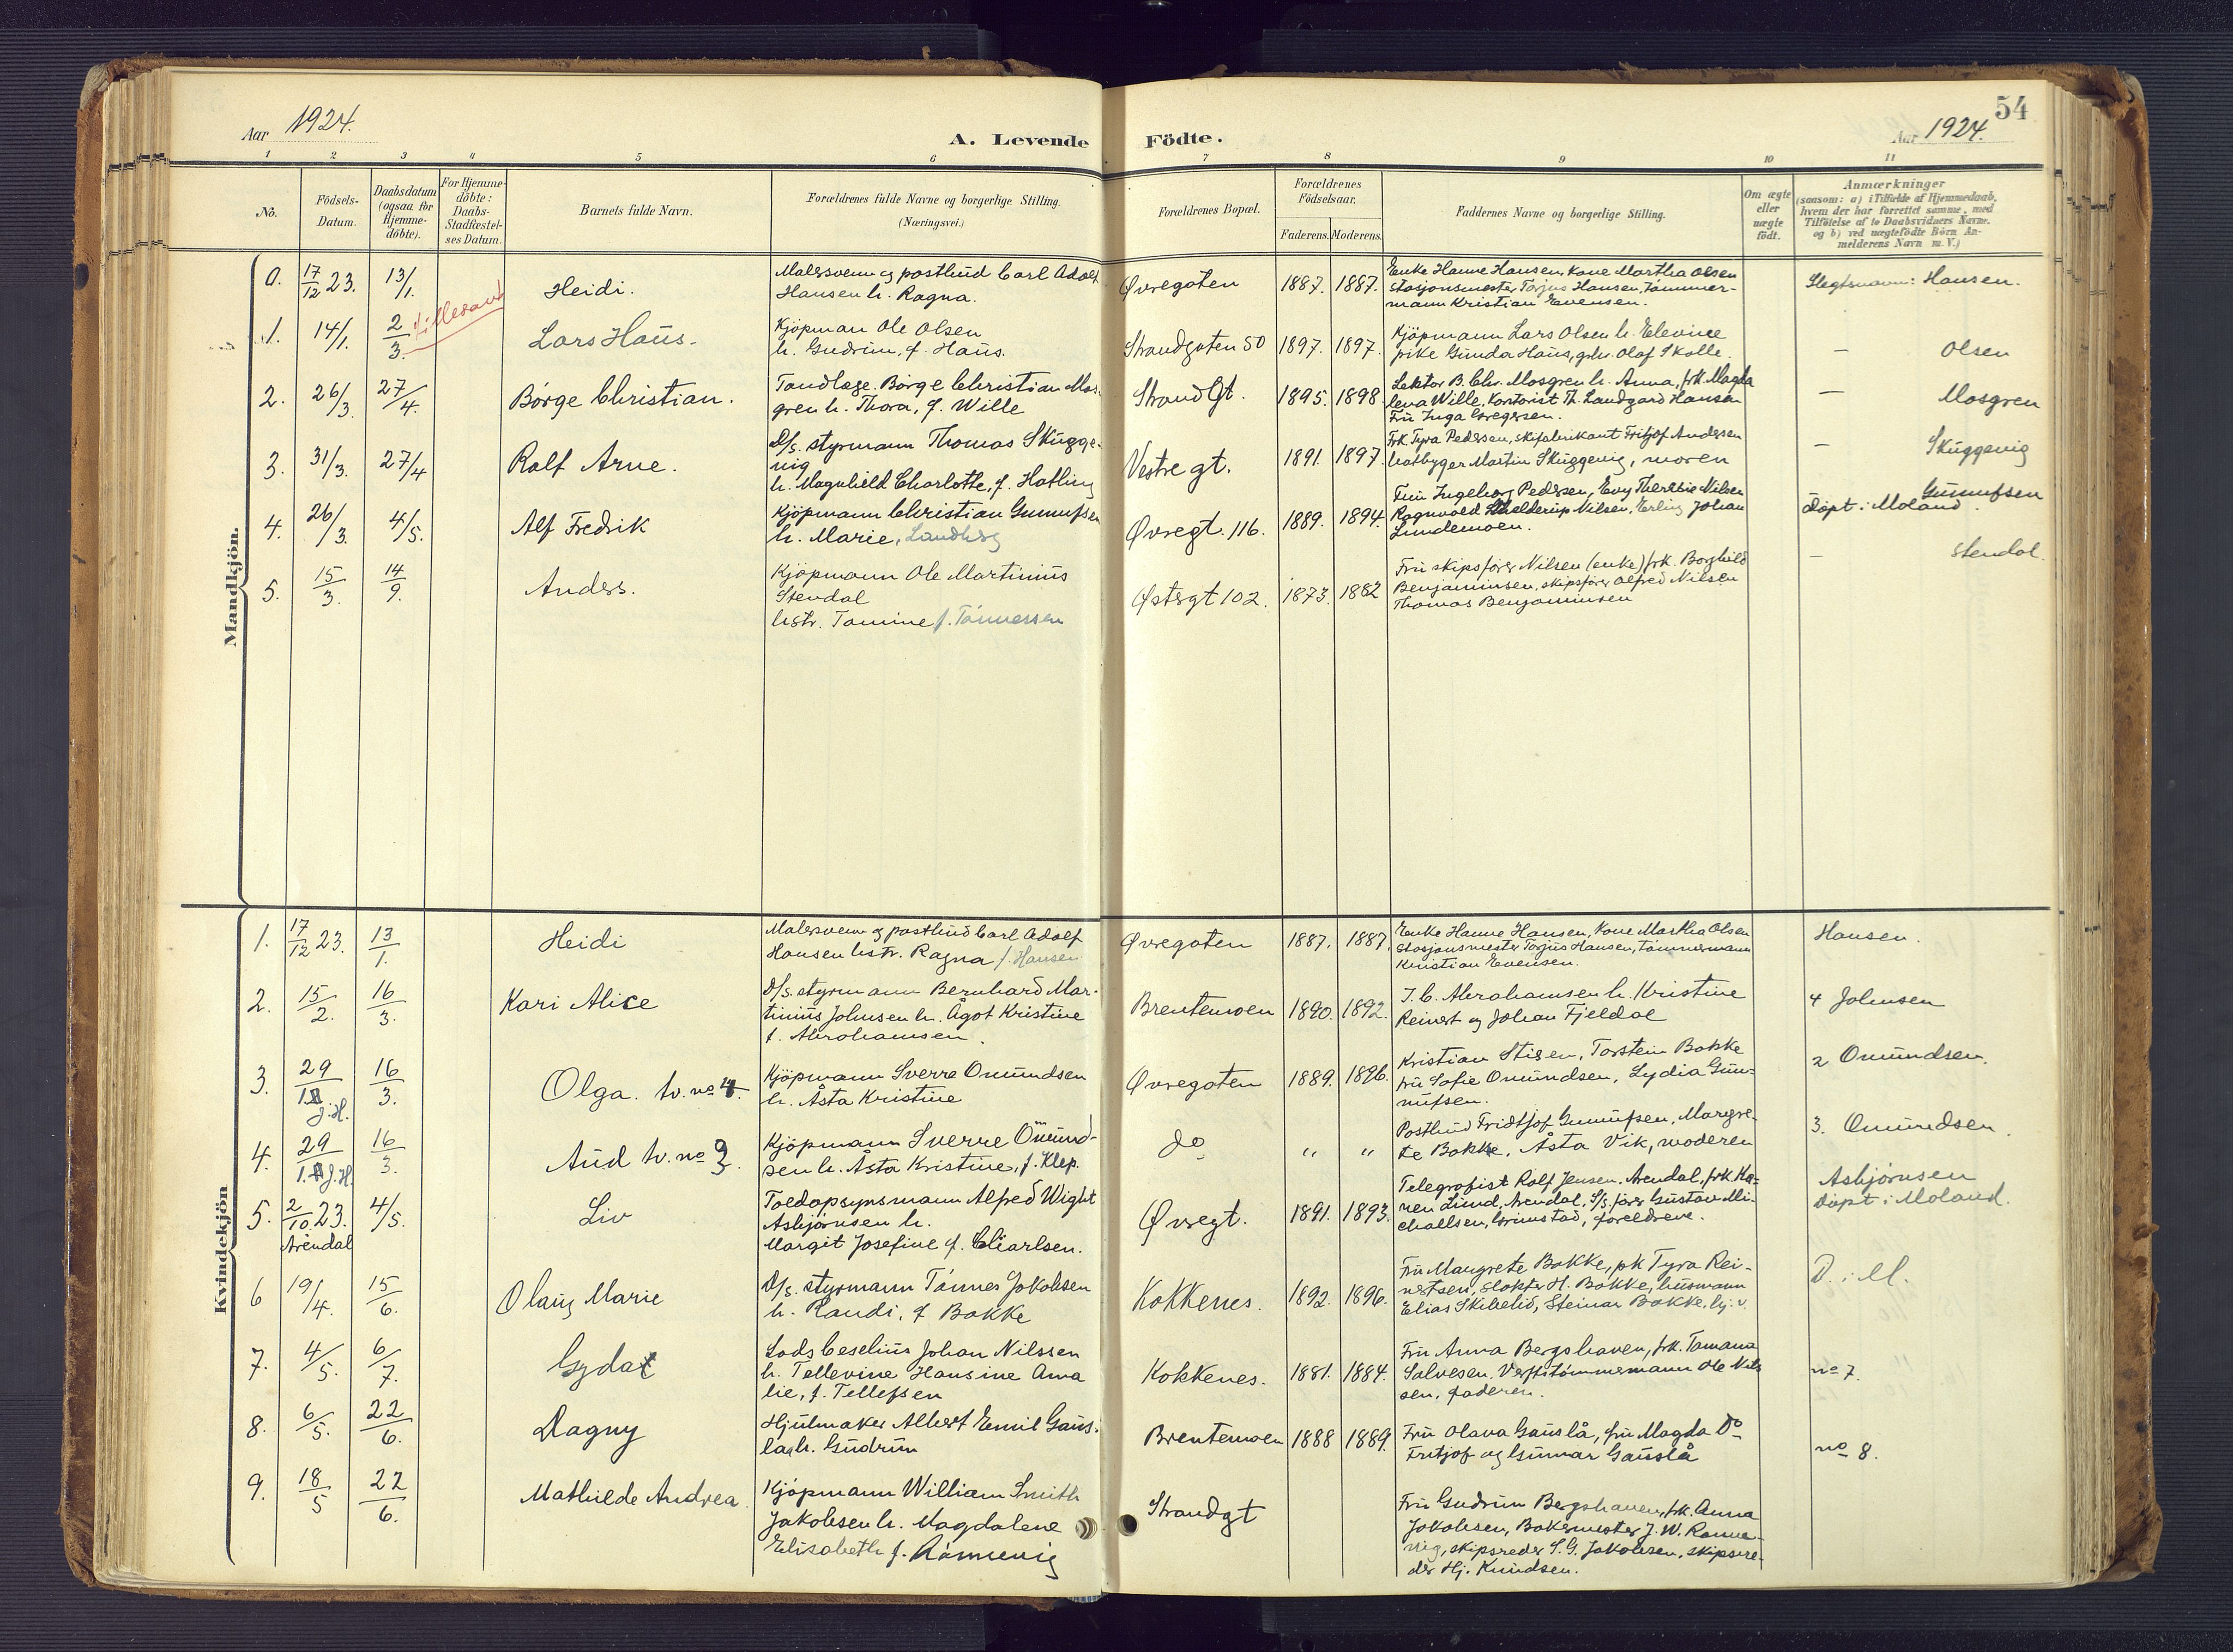 54
Aar 1924.
A. Levende Födte.
Aar 1924.
1 2 3 4 5 6 7 8 9 10 11
No.
Födsels-
Datum.
Daabsdatum
(ogsaa for
Hjemme-
döbte).
For Hjemme-
döbte:
Daabs-
Stadfæstel-
ses Datum.
Barnets fulde Navn.
Forældrenes fulde Navne og borgerlige Stilling.
(Næringsvei.)
Forældrenes Bopæl.
Forældrenes
Födselsaar.
Faderens. Moderens.
Faddernes Navne og borgerlige Stilling.
Om ægte
eller
uægte
født.
Anmærkninger
(saasom: a) i Tilfælde af Hjemmedaab,
hvem der har forrettet samme, med
Tilföielse af to Daabsvidners Navne.
og b) ved uægtefödte Börn An-
melderens Navn m. V.)
Mandkjön.
0. 17/12 23. 13/1. Heidi.
Malersvenn og postbud Carl Adolf
Hansen h. Ragna.
Øvregaten 1887. 1887.
Enke Hanne Hansen, Kone Martha Olsen
Stasjonsmester Torjus Hansen, Tømmer-
mann Kristian Evensen.
Slegtsnavn: Hansen.
1. 14/1. 2/3. Lars Haus.
Kjöpman Ole Olsen
h. Gudrun, f. Haus.
Strandgaten 50 1897. 1897.
Kjöpmann Lars Olsen h. Elevine
pike Gunda Haus, grbr. Olaf Skolle.
— Olsen
2. 26/3. 27/4. Börge Christian.
Tandlæge. Börge Christian Mos-
gren h. Thora, f. Wille
Strandgt. 1895. 1898
Lektor B. Chr. Mosgren h. Anna, frk. Magda
lena Wille, Kontorist Th. Landgard Hansen
Fru Inga Gregersen.
— Mosgren
3. 31/3. 27/4 Ralf Arne.
D/s. styrmann Thomas Skugge-
vig
h. Magnhild Charlotte, f. Hatling
Vestre gt. 1891. 1897.
Frk. Tyra Pedersen, skifabrikant Fritjof Andersen
baatbyger Martin Skuggevig, moren
— Skuggevig
4. 26/3. 4/5. Alf Fredrik
Kjöpmann Christian Gunnufsen
h. Marie, Landberg
Øvregt. 116. 1889. 1894.
Fru Ingeborg Pedersen, Evy Therese Nilsen
Ragnvold Schelderup Nilsen, Erling Johan
Lundemoen.
Gunnufsen
döpt i Moland.
5. 15/3. 14/9. Anders.
Kjöpmann Ole Martinius
Stendal
hstr. Tomine f. Tönnessen
Østergt 102. 1873. 1882
Fru skipsförer Nilsen (enke) frk. Borghild
Benjaminsen, skipsförer Alfred Nilsen
Thomas Benjaminsen
— Stendal.
Kvindekjön
1. 17/12 23. 13/1. Heidi
Malersvenn og postbud Carl Adolf
Hansen hstr. Ragna f. Hansen
Øvregaten 1887. 1887.
Enke Hanne Hansen, Kone Martha Olsen
Stasjonsmester Torjus Hansen, tömmermann
Kristian Evensen.
Hansen.
2. 15/2. 16/3. Kari Alice
D/s. styrmann Bernhard Mar-
tinius Johnsen h. Ågot Kristine
f. Abrahamsen.
Brentemoen 1890. 1892.
J. C. Abrahamsen h. Kristine
Reinert og Johan Fjeldal
4 Johnsen
3. 29/1 J.H. 16/3. Olga. tv. no 4.
Kjöpmann Sverre Omundsen
h. Åsta Kristine
Øvregaten 1889. 1896.
Kristian Stigen, Torstein Bakke
fru Sofie Omundsen, Lydia Gun-
nufsen.
2 Omundsen.
4. 29/1. J.H. 16/3. Aud tv. no 3.
Kjöpmann Sverre Omund-
sen h. Åsta Kristine, f. Klep.
do " "
Postbud Fridtjof Gunnufsen, Margre-
te Bakke, Åsta Vik, moderen
3. Omundsen.
5. 2/10 23. Arendal 4/5. Liv
Toldopsynsmann Alfred Wight
Asbjörnsen h.
Margit Josefine f. Charlsen.
Øvregt. 1891. 1893.
Telegrafist Rolf Jensen. Arendal, frk. Ka-
ren Lund, Arendal, S/s. förer Gustav Mi-
chaelsen, Grimstad, foreldrene.
Asbjörnsen
Döpt i Moland.
6 19/4. 15/6. Olaug Marie
D/s. styrmann Tönnes Jakobsen
h. Randi, f. Bakke
Kokkenes. 1892. 1896.
Fru Margrete Bakke, pk Tyra Rei-
nertsen, slakter H. Bakke, husmann
Elias Skibelid, Steinar Bakke,
D. i M.
7. 4/5. 6/7. Gyda
Lods Ceselius Johan Nilssen
h. Tellevine Hansine Ama
lie, f. Tellefsen
Kokkenes. 1881. 1884.
Fru Anna Bergshaven, frk. Tomana
Salvesen. Verftstömmermann Ole Nils
sen, faderen.
no 7.
8. 6/5. 22/6. Dagny
Hjulmaker Albert Emil Gaus-
la h. Gudrun
Brentemoen 1888 1889.
Fru Olava Gauslå, fru Magda Do
Fritjof og Gunnar Gauslå
no 8.
9. 18/5 22/6. Mathilde Andrea.
Kjöpmann William Smith
Jakobsen h. Magdalene
Elisabeth f. Rönnevig
Strandgt
Fru Gudrun Bergshaven, frk. Anna
Jakobsen, Bakermester J. W. Rønne-
vig, skipsreder S. G. Jakobsen, skipsre-
der Hj. Knudsen.